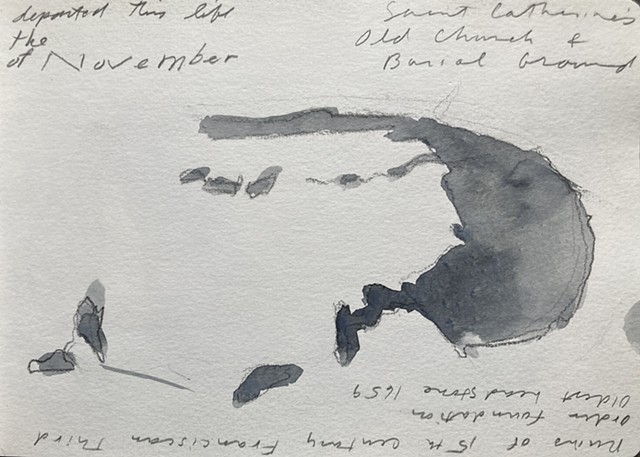 departed this life
the
of November
Saint Catherine's
Old Church &
Burial Ground
Ruins of 15th century Franciscan Third
Order foundation
Oldest headstone 1659